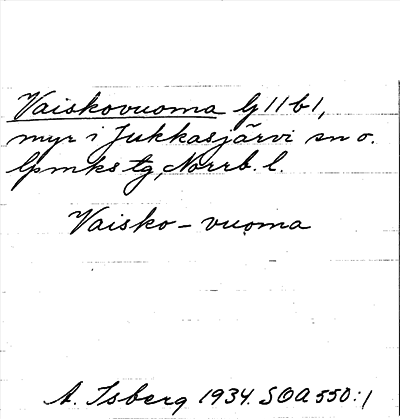 Vaiskovuoma G 11 b 1,
myr i Jukkasjärvi sn o.
lpmks tg, Norrb. l.
Vaisko-vuoma
A. Isberg 1934. SOA 550:1